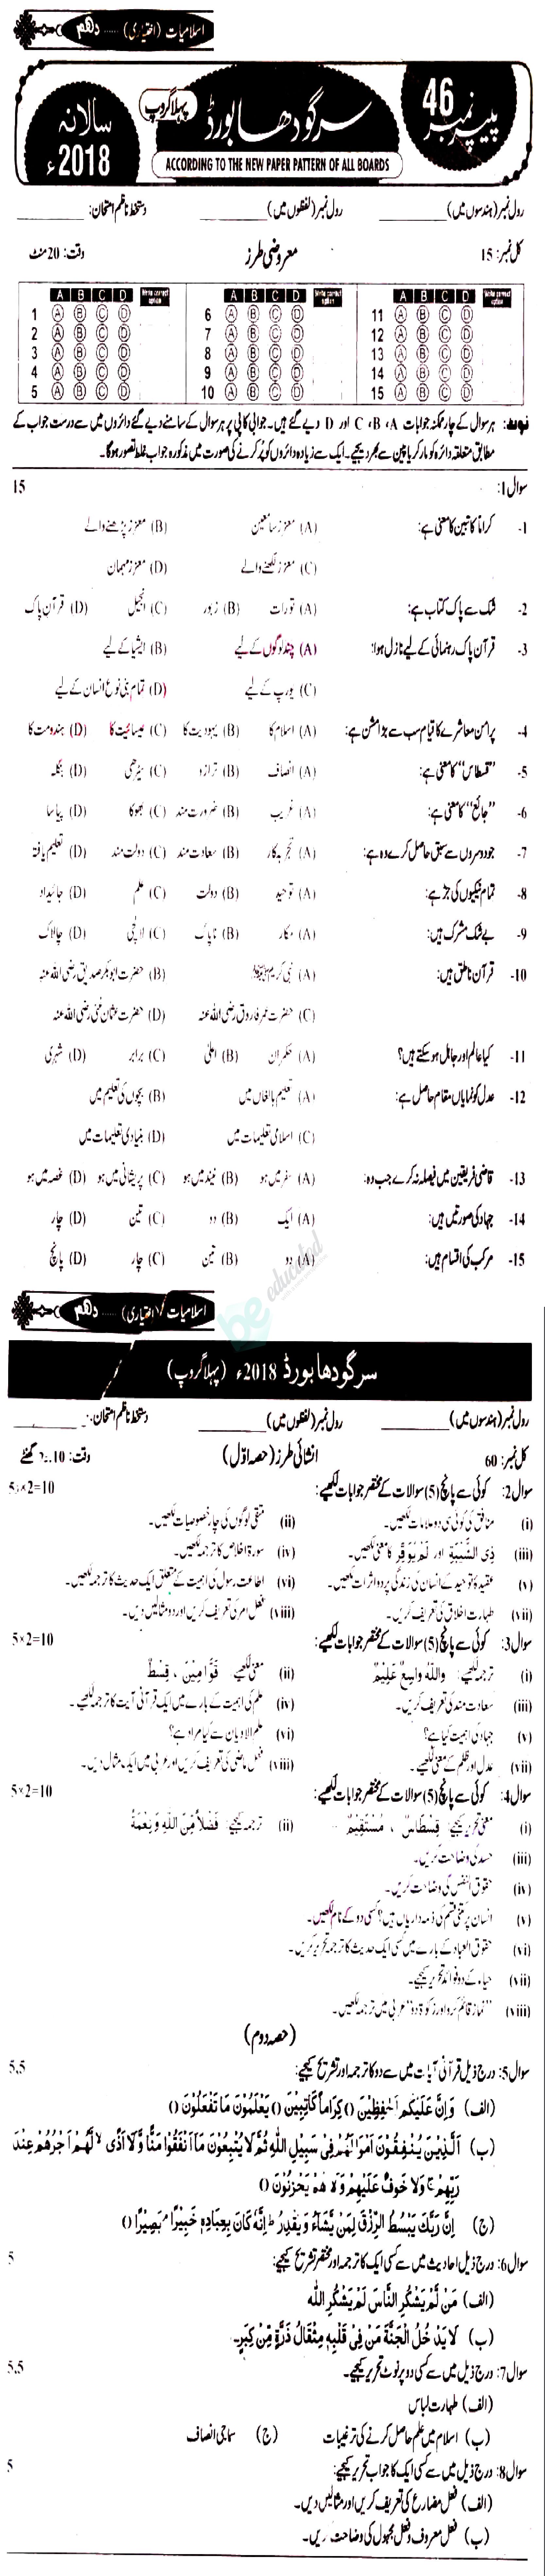 اسلامیات (اختیاری) ..... دہم
پیپر نمبر 46
سرگودھا بورڈ
پہلا گروپ
سالانہ 2018ء
ACCORDING TO THE NEW PAPER PATTERN OF ALL BOARDS
رول نمبر (ہندسوں میں)________ رول نمبر (لفظوں میں)________ دستخط ناظم امتحان:________
کل نمبر: 15 معروضی طرز وقت: 20 منٹ
A B C D Write correct option A B C D Write correct option A B C D Write correct option
1 A B C D 6 A B C D 11 A B C D
2 A B C D 7 A B C D 12 A B C D
3 A B C D 8 A B C D 13 A B C D
4 A B C D 9 A B C D 14 A B C D
5 A B C D 10 A B C D 15 A B C D
نوٹ: ہر سوال کے چار ممکنہ جوابات A ،B ،C اور D دیے گئے ہیں۔ جوابی کاپی پر ہر سوال کے سامنے دیے گئے دائروں میں سے درست جواب کے
مطابق متعلقہ دائرہ کو مارکر یا پین سے بھر دیجیے۔ ایک سے زیادہ دائروں کو پُر کرنے کی صورت میں مذکورہ جواب غلط تصور ہوگا۔
سوال 1: 15
1- کراماً کاتبین کا معنی ہے: (A) معزز سامعین (B) معزز پڑھنے والے
(C) معزز لکھنے والے (D) معزز مہمان
2- شک سے پاک کتاب ہے: (A) تورات (B) زبور (C) انجیل (D) قرآن پاک
3- قرآن پاک رہنمائی کے لیے نازل ہوا: (A) چند لوگوں کے لیے (B) ایشیا کے لیے
(C) یورپ کے لیے (D) تمام بنی نوع انسان کے لیے
4- پرامن معاشرے کا قیام سب سے بڑا مشن ہے: (A) اسلام کا (B) یہودیت کا (C) عیسائیت کا (D) ہندومت کا
5- "قسطاس" کا معنی ہے: (A) انصاف (B) ترازو (C) سیڑھی (D) بنگلہ
6- "جائع" کا معنی ہے: (A) غریب (B) ضرورت مند (C) بھوکا (D) پیاسا
7- جو دوسروں سے سبق حاصل کرے وہ ہے: (A) تجربہ کار (B) سعادت مند (C) دولت مند (D) تعلیم یافتہ
8- تمام نیکیوں کی جڑ ہے: (A) توحید (B) دولت (C) علم (D) جائیداد
9- بے شک مشرک ہیں: (A) مکار (B) ناپاک (C) لالچی (D) چالاک
10- قرآن ناطق ہیں: (A) نبی کریم ﷺ (B) حضرت ابوبکر صدیق رضی اللہ عنہ
(C) حضرت عمر فاروق رضی اللہ عنہ (D) حضرت عثمان غنی رضی اللہ عنہ
11- کیا عالم اور جاہل ہو سکتے ہیں؟ (A) حکمران (B) اعلیٰ (C) برابر (D) شہری
12- عدل کو نمایاں مقام حاصل ہے: (A) تعلیم بالغاں میں (B) بچوں کی تعلیم میں
(C) اسلامی تعلیمات میں (D) بنیادی تعلیمات میں
13- قاضی فریقین میں فیصلہ نہ کرے جب وہ: (A) سفر میں ہو (B) نیند میں ہو (C) پریشانی میں ہو (D) غصہ میں ہو
14- جہاد کی صورتیں ہیں: (A) ایک (B) دو (C) تین (D) چار
15- مرکب کی اقسام ہیں: (A) دو (B) تین (C) چار (D) پانچ
be educated
اسلامیات (اختیاری) ..... دہم
سرگودھا بورڈ 2018ء (پہلا گروپ)
رول نمبر (ہندسوں میں)________ رول نمبر (لفظوں میں)________ دستخط ناظم امتحان:________
کل نمبر: 60 انشائی طرز (حصہ اوّل) وقت: 2.10 گھنٹے
سوال 2: کوئی سے پانچ (5) سوالات کے مختصر جوابات لکھیے: 5×2=10
(i) منافق کی کوئی سی دو علامات لکھیں۔ (ii) متقی لوگوں کی چار خصوصیات لکھیں۔
(iii) ذِی الشَّیْبَۃِ اور لَمْ یُوَقِّرْ کا معنی لکھیں۔ (iv) سورۃ اخلاص کا ترجمہ لکھیں۔
(v) عقیدہ توحید کے انسان کی زندگی پر دو اثرات لکھیں۔ (vi) اطاعت رسول کی اہمیت کے متعلق ایک حدیث کا ترجمہ لکھیں۔
(vii) طہارت اخلاق کی تعریف کریں۔ (viii) فعل امر کی تعریف کریں اور دو مثالیں دیں۔
سوال 3: کوئی سے پانچ (5) سوالات کے مختصر جوابات لکھیے: 5×2=10
(i) ترجمہ لکھیے: وَاللّٰہُ وَاسِعٌ عَلِیْمٌ (ii) معنی لکھیے: قَوَّامِیْنَ ، قِسْطٌ
(iii) سعادت مند کی تعریف کریں۔ (iv) علم کی اہمیت کے بارے میں ایک قرآنی آیت کا ترجمہ لکھیے۔
(v) جہاد کی اہمیت کیا ہے؟ (vi) علم الادیان سے کیا مراد ہے؟
(vii) عدل اور ظلم کے معنی لکھیے۔ (viii) فعل ماضی کی تعریف کریں اور عربی میں ایک مثال دیں۔
سوال 4: کوئی سے پانچ (5) سوالات کے مختصر جوابات لکھیے: 5×2=10
(i) معنی تحریر کیجیے: قِسْطَاسٌ ، مُسْتَقِیْمٌ (ii) ترجمہ کیجیے: فَضْلًا مِّنَ اللّٰہِ وَنِعْمَۃً
(iii) حسد کی وضاحت کریں۔
(iv) حقوق النفس کی وضاحت کریں۔
(v) انسان پر کتنی قسم کی ذمہ داریاں ہیں؟ کسی دو کے نام لکھیں۔
(vi) حقوق العباد کے بارے میں کسی ایک حدیث کا ترجمہ تحریر کریں۔
(vii) حیاء کے دو فوائد تحریر کیجیے۔
(viii) "نماز قائم کرو اور زکوٰۃ دو" عربی میں ترجمہ لکھیں۔
(حصہ دوم)
سوال 5: درج ذیل قرآنی آیات میں سے دو کا ترجمہ اور تشریح کیجیے: 5,5
(الف) وَاِنَّ عَلَیْکُمْ لَحٰفِظِیْنَ () کِرَاماً کَاتِبِیْنَ () یَعْلَمُوْنَ مَا تَفْعَلُوْنَ ()
(ب) اَلَّذِیْنَ یُنْفِقُوْنَ اَمْوَالَھُمْ فِیْ سَبِیْلِ اللّٰہِ ثُمَّ لَا یُتْبِعُوْنَ مَا اَنْفَقُوْا مَنًّا وَّلَا اَذًی لَّھُمْ اَجْرُھُمْ عِنْدَ
رَبِّھِمْ وَلَا خَوْفٌ عَلَیْھِمْ وَلَا ھُمْ یَحْزَنُوْنَ ()
(ج) اِنَّ رَبَّکَ یَبْسُطُ الرِّزْقَ لِمَنْ یَّشَآءُ وَیَقْدِرُ ط اِنَّہٗ کَانَ بِعِبَادِہٖ خَبِیْرًا م بَصِیْرًا ()
سوال 6: درج ذیل احادیث میں سے کسی ایک کا ترجمہ اور مختصر تشریح کیجیے: 5
(الف) مَنْ لَّمْ یَشْکُرِ النَّاسَ لَمْ یَشْکُرِ اللّٰہَ
(ب) لَا یَدْخُلُ الْجَنَّۃَ مَنْ فِیْ قَلْبِہٖ مِثْقَالُ ذَرَّۃٍ مِّنْ کِبَرٍ۔
سوال 7: درج ذیل میں سے کسی دو پر نوٹ تحریر کیجیے۔ 5,5
(الف) طہارت لباس
(ب) اسلام میں علم حاصل کرنے کی ترغیبات (ج) سماجی انصاف
سوال 8: درج ذیل میں سے کسی ایک کا جواب تحریر کیجیے: 5
(الف) فعل مضارع کی تعریف کریں اور مثالیں دیں۔
(ب) فعل معروف و فعل مجہول کی وضاحت کریں۔